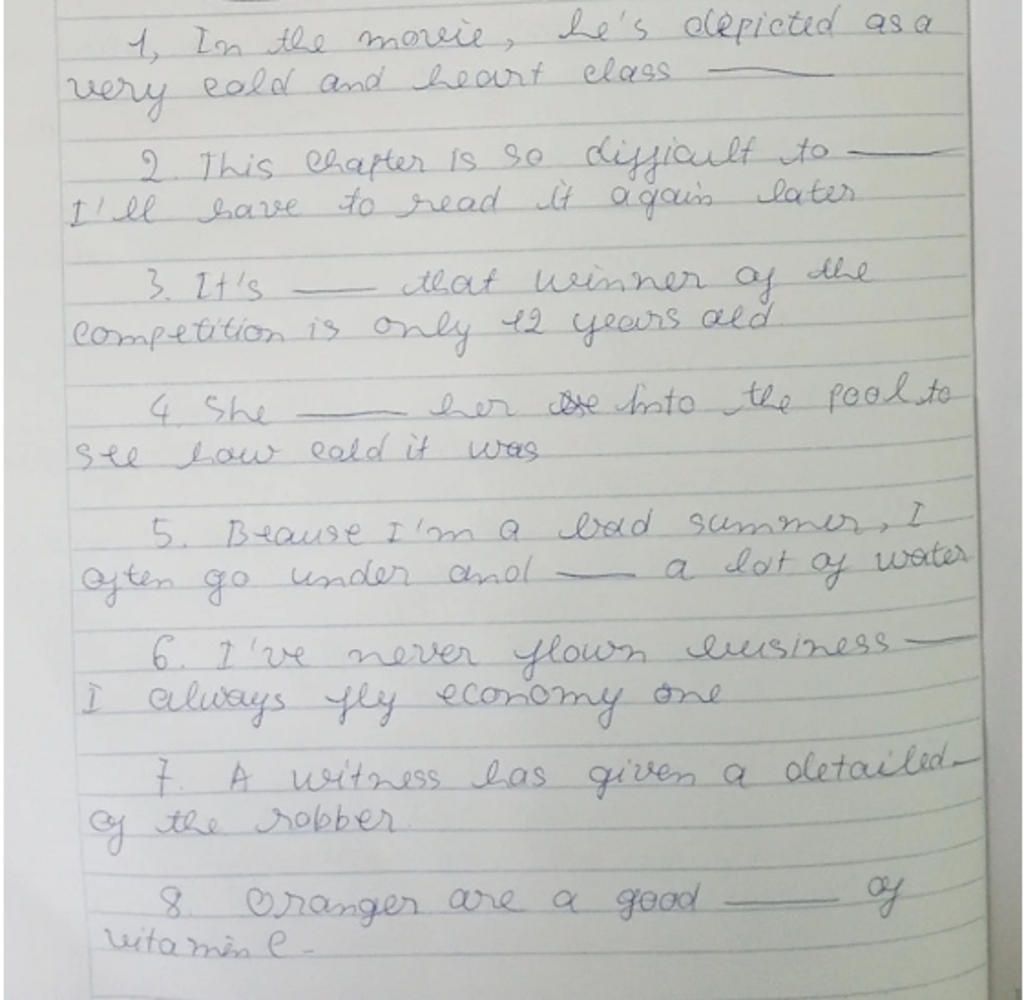 1, In the movie, he's depicted as a
very cold and heart class ____
2. This chapter is so difficult to ____
I'll have to read it again later
3. It's ____ that winner of the
competition is only 12 years old
4 She ____ her into the pool to
see how cold it was
5. Beause I'm a bad summer, I
often go under and ____ a lot of water
6. I've never flown business ____
I always fly economy one
7. A witness has given a detailed ____
of the robber
8. Oranger are a good ____ of
vitamin C.